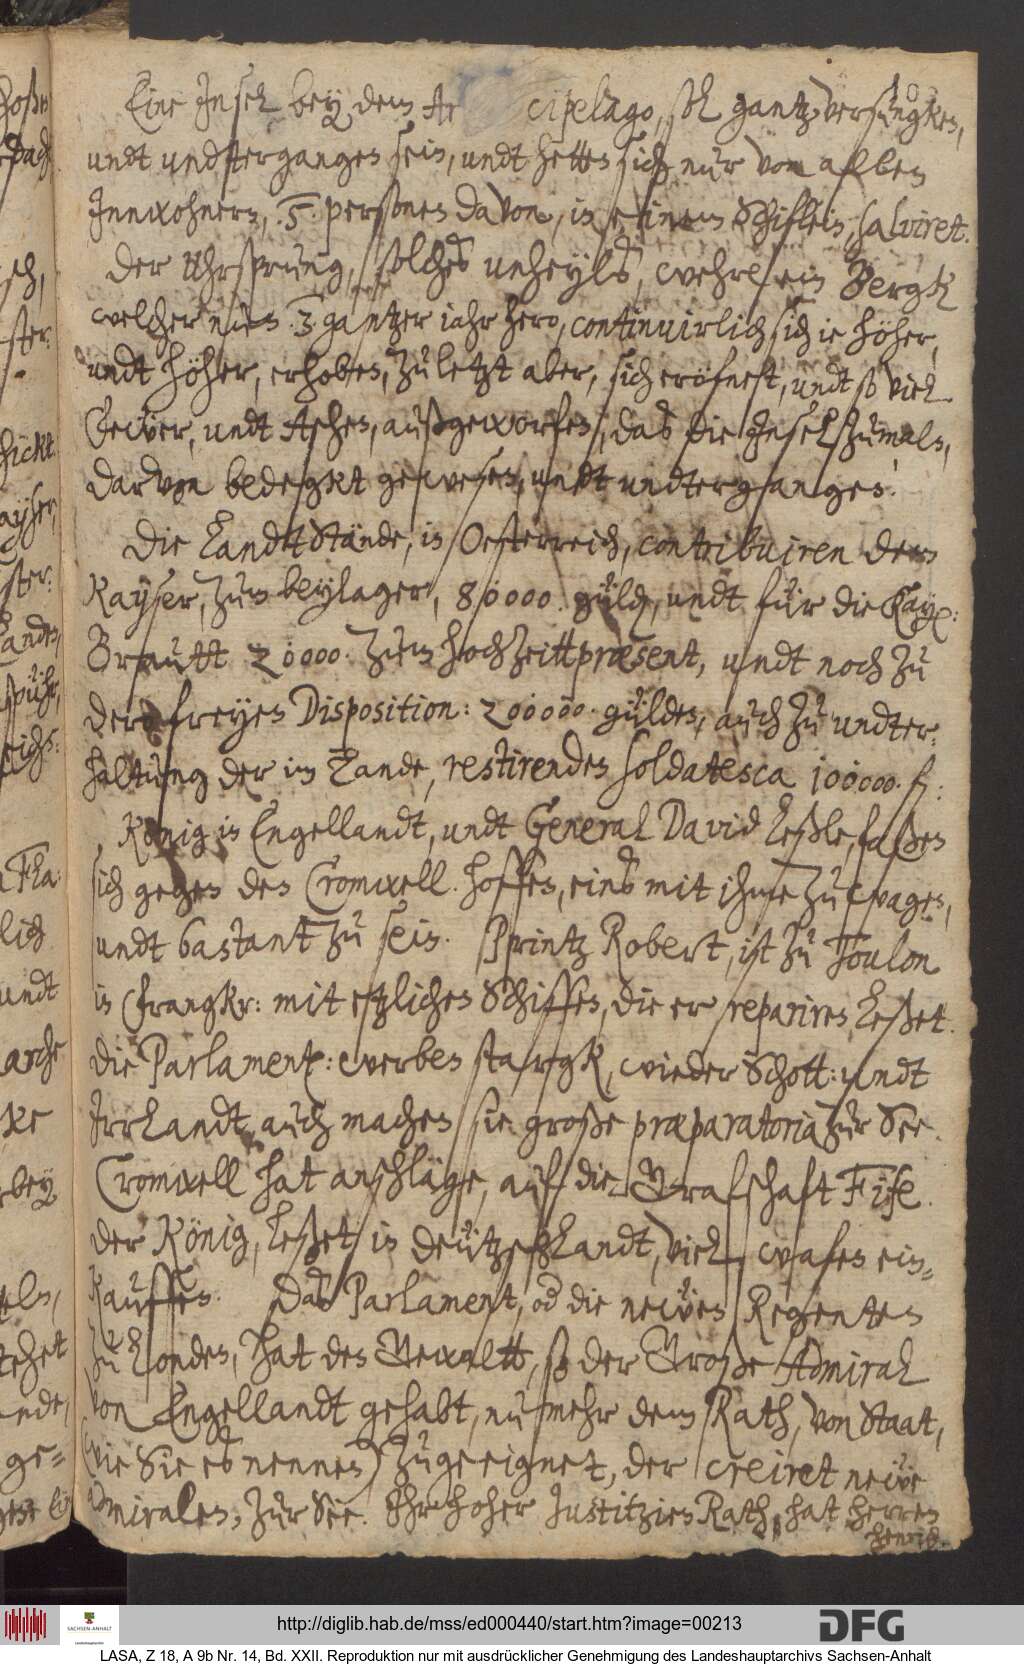 103
Eine Insel bey dem Ar cipelago, sol gantz versungken,
undt undtergangen sein, undt hetten sich nur von allen
Innwohnern, .5. personen davon, in einem Schiflein, salviret.
Der Uhrsprung, solches unheyls, wehre ein Bergk
welcher nun .3. gantzer iahr hero, continuirlich sich ie höher,
undt höher, erhoben, zu letzt aber, sich eröfnet, undt so viel
Fewer, undt Aschen, außgeworfen, das die Insel zumaln,
darvon bedegkt gewesen, undt undtergangen.
Die Landt Stände, in Oesterreich, contribuiren dem
Kayser, zum beylager, 80000. güld, undt für die Kay:
Brautt 20000. zum hochzeitt præsent, undt noch zu
dero freyen Disposition: 200000. gülden, auch zu undter¬
haltung der im Lande, restirenden soldatesca 100000. fl:
König in Engellandt, undt General David Leßle, faßen
sich gegen den Cromwell. hoffen, eins mit ihme zu wagen,
undt bastant zu sein. Printz Robert, ist zu Toulon
in Frangkr: mit etzlichen Schiffen, die er repariren leßet.
Die Parlament: werben stargk, wieder Schott: undt
Irrlandt, auch machen sie große præparatoria zur See.
Cromwell hat anschläge, auf die Grafschaft Fife.
Der König, leßet in Deutzschlandt, viel wafen ein¬
kauffen. Das Parlament, od die newen Regenten
zu Londen, hat den Gewaltt, so der Große Admiral
von Engellandt gehabt, nu mehr dem Rath, von Staat,
(wie Sie es nennen) zugeeignet, der creiret newe
Admiralen, zur See. Ihr hoher Justitzien Rath, hat herren
Henrich
http://diglib.hab.de/mss/ed000440/start.htm?image=00213
SACHSEN-ANHALT
DFG
LASA, Z 18, A 9b Nr. 14, Bd. XXII. Reproduktion nur mit ausdrücklicher Genehmigung des Landeshauptarchivs Sachsen-Anhalt